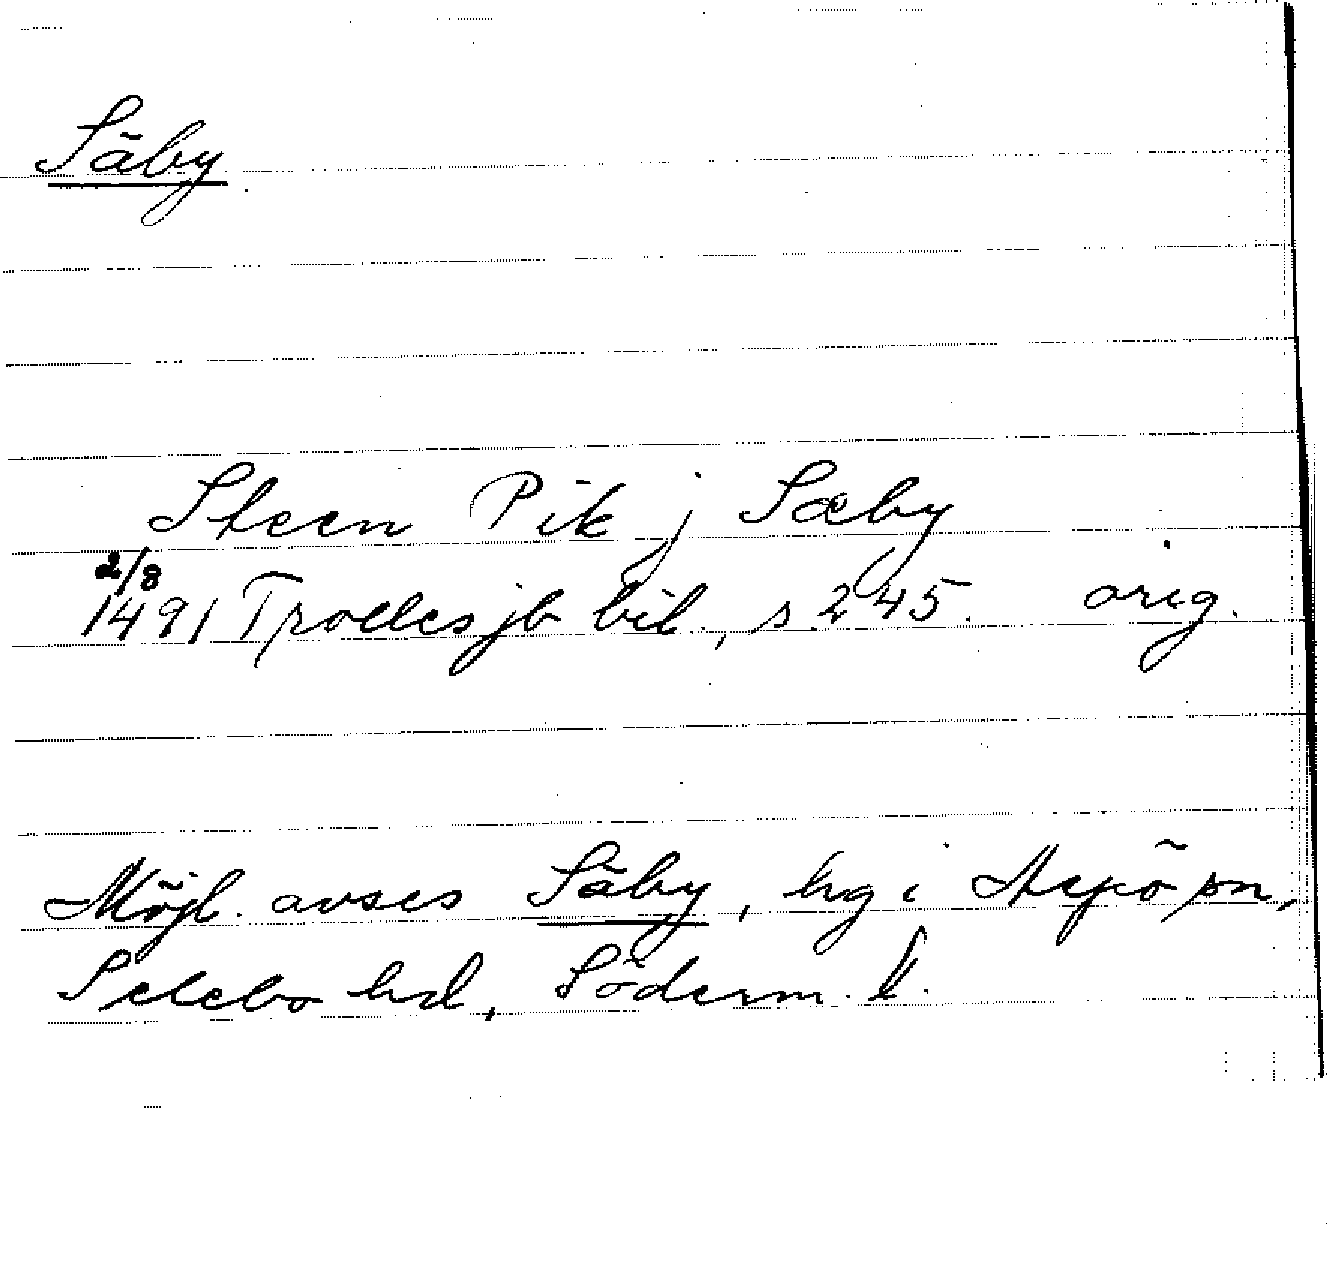 Säby
Steen Pik j Sæby
2/8
1491 Trolles jb bil., s 245. orig.
Möjl. avses Säby, hg i Aspö sn,
Selebo hd, Söderm. l.